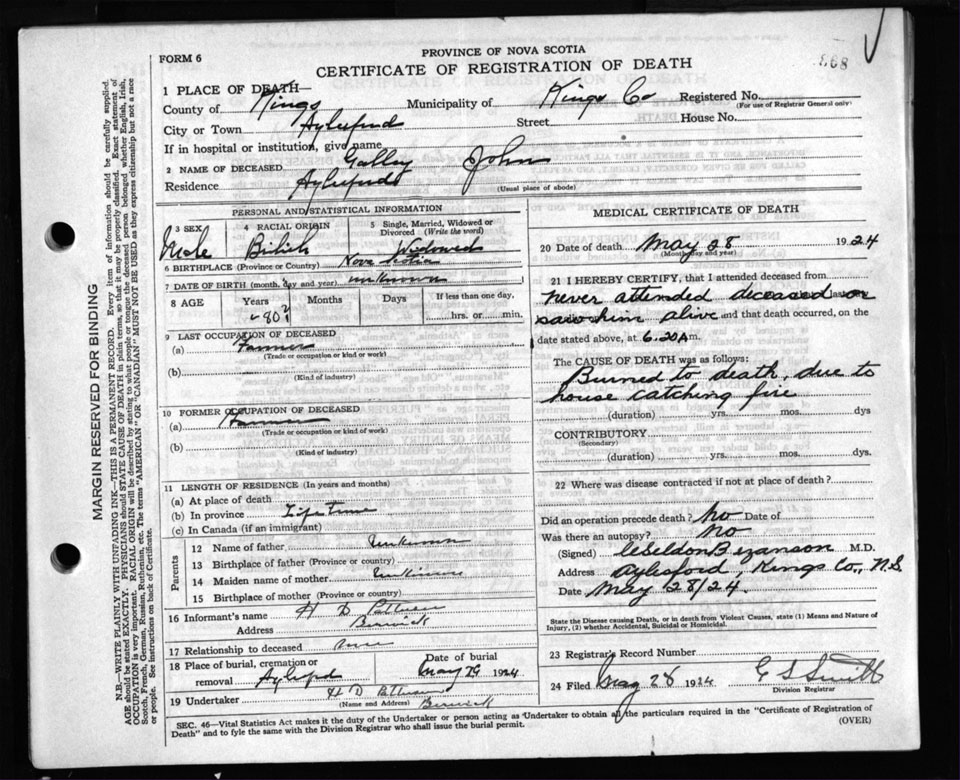 FORM 6
PROVINCE OF NOVA SCOTIA
CERTIFICATE OF REGISTRATION OF DEATH
868
1 PLACE OF DEATH—
County of Kings Municipality of Kings Co Registered No.
(For use of Registrar General only)
City or Town Aylesford Street House No.
If in hospital or institution, give name
2 NAME OF DECEASED Galley John
Residence Aylesford
(Usual place of abode)
PERSONAL AND STATISTICAL INFORMATION
3 SEX 4 RACIAL ORIGIN 5 Single, Married, Widowed or Divorced (Write the word)
Male British Widowed
6 BIRTHPLACE (Province or Country) Nova Scotia
7 DATE OF BIRTH (month, day and year) unknown
8 AGE Years Months Days If less than one day,
80? hrs. or min.
9 LAST OCCUPATION OF DECEASED
(a) Farmer
(Trade or occupation or kind or work)
(b)
(Kind of industry)
10 FORMER OCCUPATION OF DECEASED
(a) Farmer
(Trade or occupation or kind of work)
(b)
(Kind of industry)
11 LENGTH OF RESIDENCE (In years and months)
(a) At place of death
(b) In province Life time
(c) In Canada (if an immigrant)
Parents
12 Name of father Unknown
13 Birthplace of father (Province or country)
14 Maiden name of mother Unknown
15 Birthplace of mother (Province or Country)
16 Informant's name H D
Address Berwick
17 Relationship to deceased
18 Place of burial, cremation or Date of burial
removal Aylesford May 29 1924
19 Undertaker H D
(Name and Address) Berwick
MEDICAL CERTIFICATE OF DEATH
20 Date of death May 28 1924
(Month day and year)
21 I HEREBY CERTIFY, that I attended deceased from
never attended deceased or
saw him alive and that death occurred, on
date stated above, at 6.20 A m.
The CAUSE OF DEATH was as follows:
Burned to death, due to
house catching fire
(duration) yrs. mos. dys
CONTRIBUTORY
(Secondary)
(duration) yrs. mos. dys.
22 Where was disease contracted if not at place of death?
Did an operation precede death? No Date of
Was there an autopsy? No
(Signed) Bezanson M.D.
Address Aylesford, Kings Co., N.S
Date May 28/24.
State the Disease causing Death, or in death from Violent Causes, state (1) Means and Nature of
Injury, (2) whether Accidental, Suicidal or Homicidal.
23 Registrar's Record Number
24 Filed May 28 1924 E S Smith
Division Registrar
SEC. 46—Vital Statistics Act makes it the duty of the Undertaker or person acting as Undertaker to obtain all the particulars required in the "Certificate of Registration of
Death" and to fyle the same with the Division Registrar who shall issue the burial permit. (OVER)
MARGIN RESERVED FOR BINDING
N.B.—WRITE PLAINLY WITH UNFADING INK—THIS IS A PERMANENT RECORD. Every item of information should be carefully supplied.
AGE should be stated EXACTLY. PHYSICIANS should STATE CAUSE OF DEATH in plain terms, so that it may be properly classified. Exact statement of
OCCUPATION is very important. RACIAL ORIGIN will be described by stating to what people or tongue the deceased person belonged whether English, Irish,
Scotch, French, German, Russian, Ruthenian, etc. The terms "AMERICAN" OR "CANADIAN" MUST NOT BE USED as they express citizenship but not a race
or people. See instructions on back of Certificate.